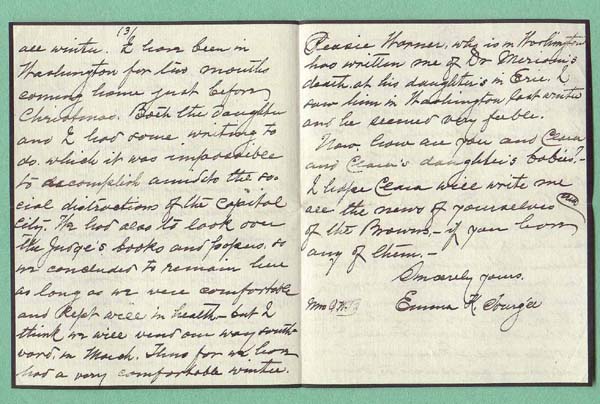 13/
all winter. I have been in
Washington for two months
coming home just before
Christmas. Both the daughter
and I had some writing to
do. which it was impossible
to accomplish amidst the so-
cial distractions of the Capitol
City. We had also to look over
the Judge's books and papers. so
we concluded to remain here
as long as we were comfortable
and kept well in health - but I
think we will wend our way south-
ward, in March. Thus far we have
had a very comfortable winter.
Warner, who is in Washington
has written me of Dr
death, at his daughter's in Erie. I
saw him in Washington last winter
and he seemed very feeble.
Now, how are you and Clara
and Clara's daughter's babies? -
I hope Clara will write me
all the news of yourselves and
of the Browns - if you have
any of them. -
Sincerely yours.
Emma K.